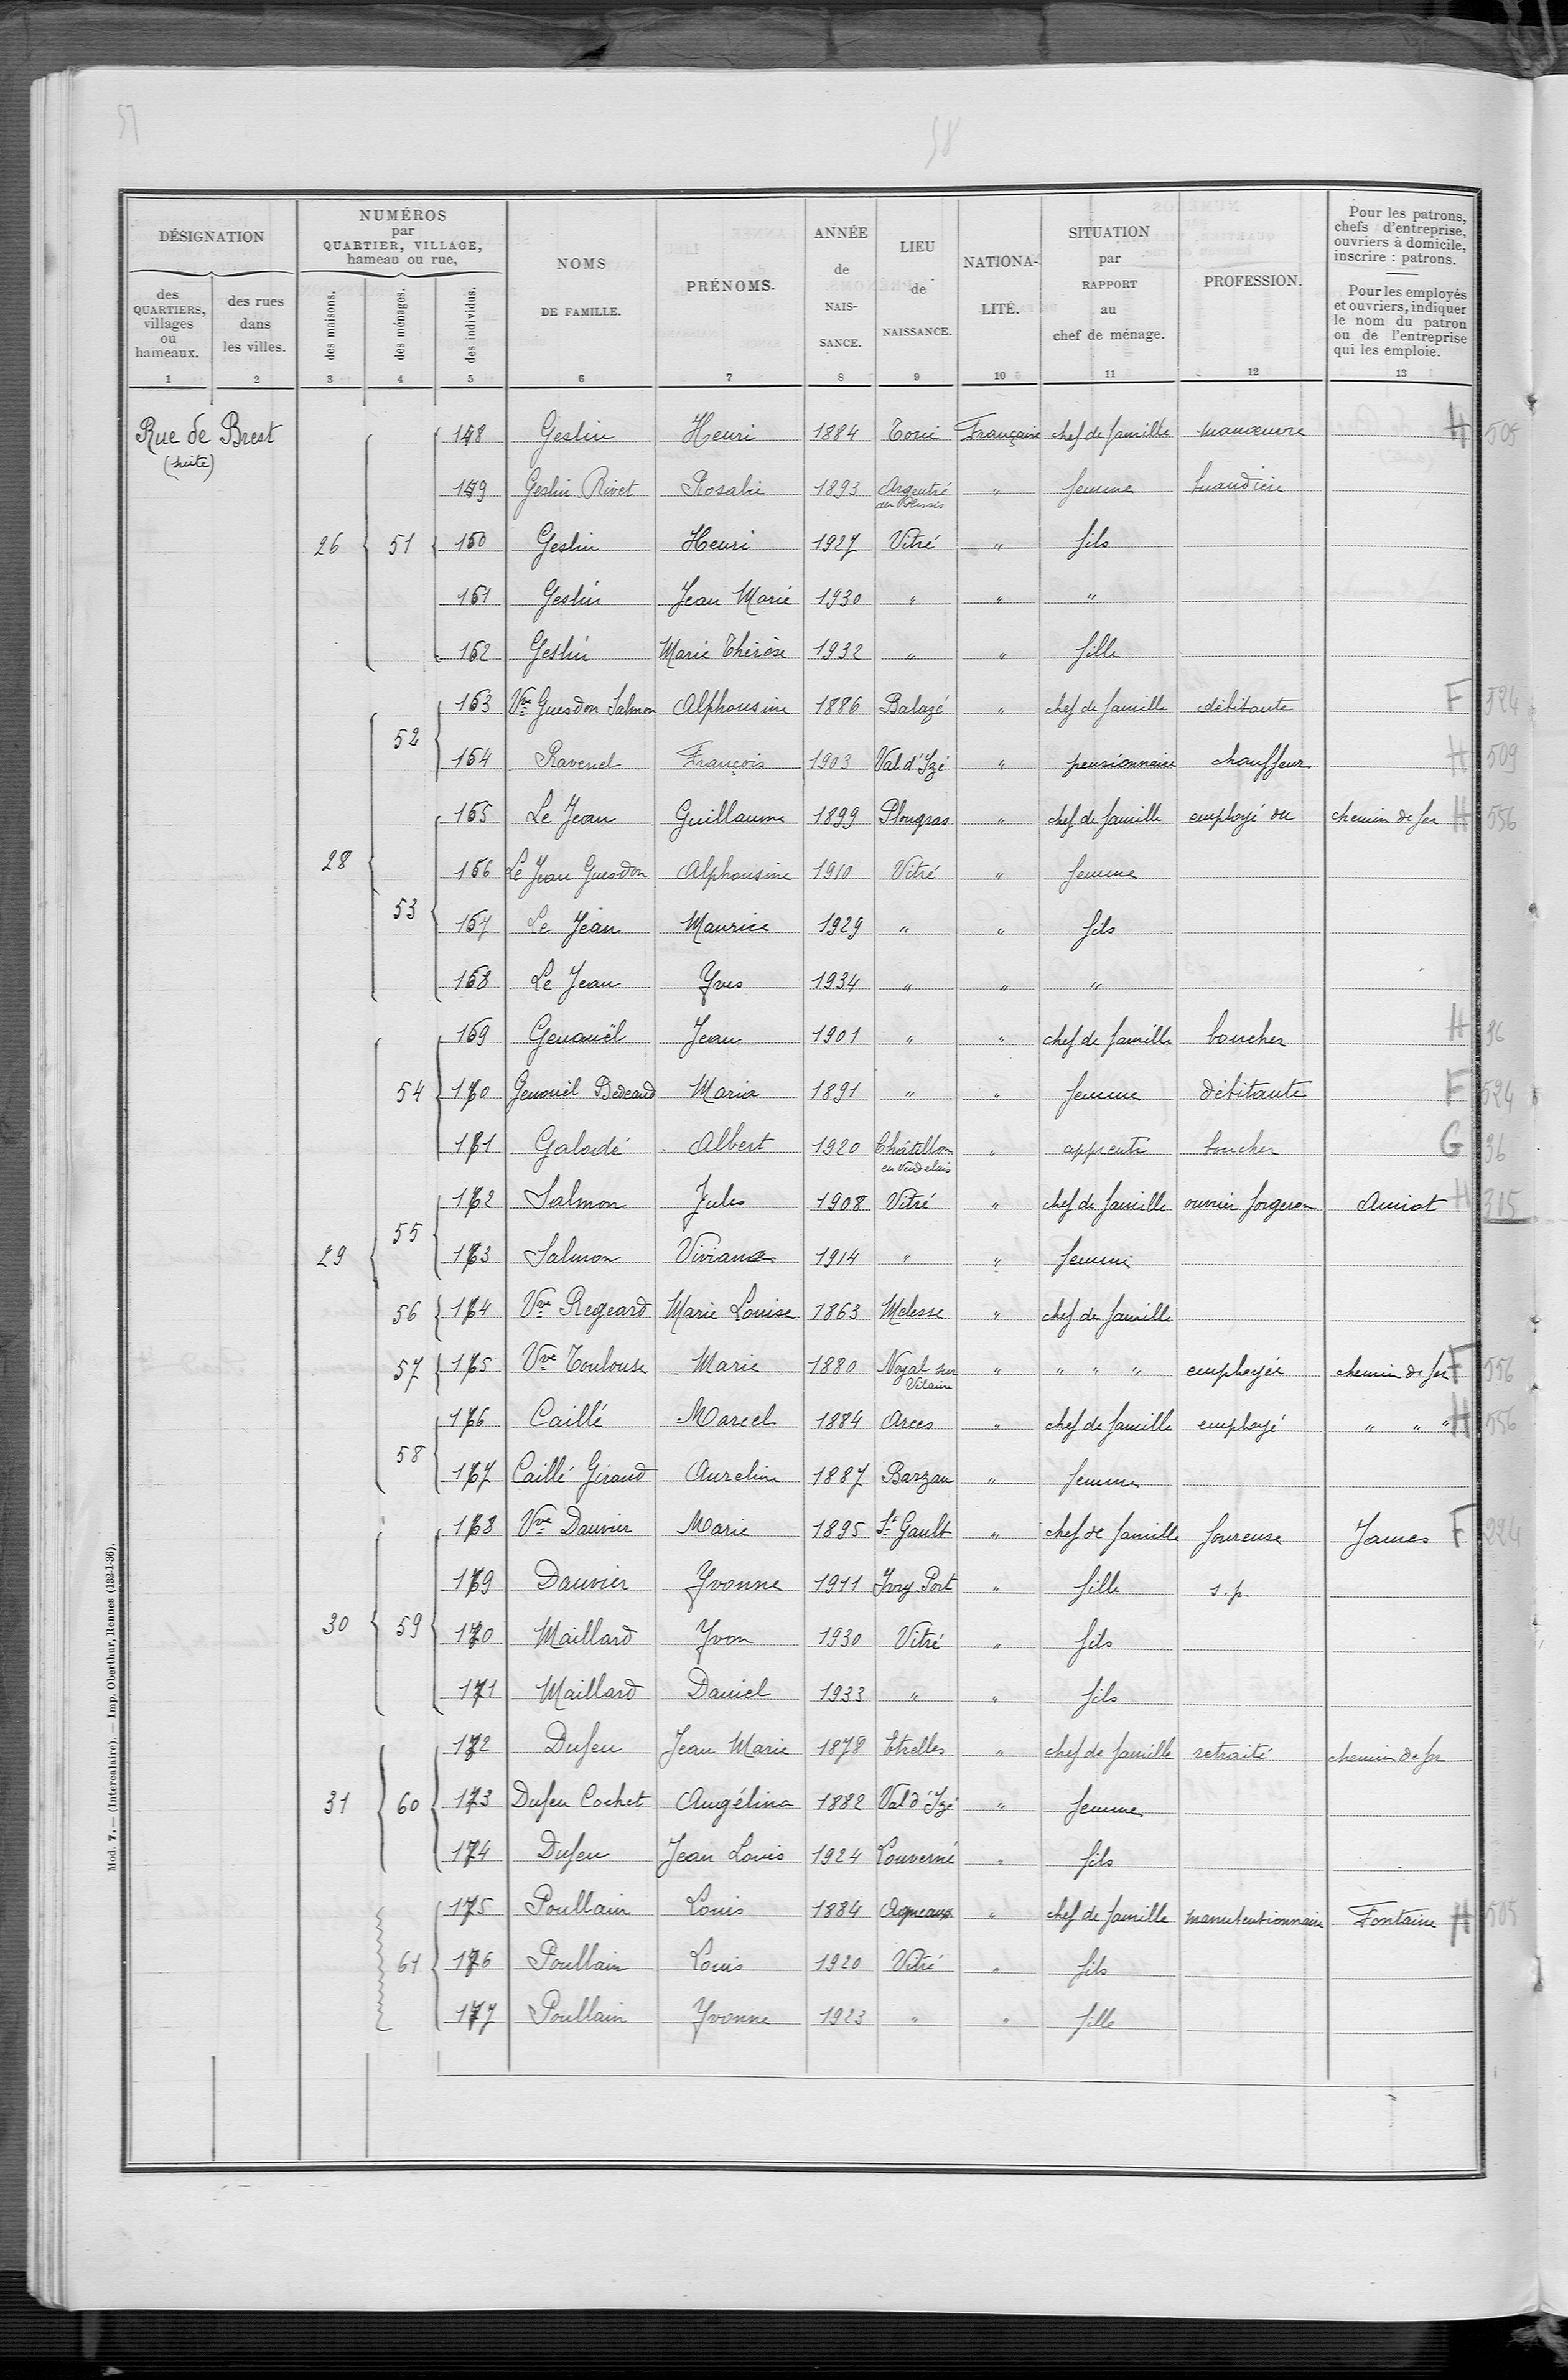 57
58
DÉSIGNATION
NUMÉROS
par
QUARTIER, VILLAGE,
hameau ou rue,
des
QUARTIERS,
villages
ou
hameaux.
des rues
dans
les villes.
des maisons.
des ménages.
des individus.
NOMS
DE FAMILLE.
PRÉNOMS.
ANNÉE
de
NAIS-
SANCE.
LIEU
de
NAISSANCE.
NATIONA-
LITÉ.
SITUATION
par
RAPPORT
au
chef de ménage.
PROFESSION.
Pour les patrons,
chefs d'entreprise,
ouvriers à domicile,
inscrire : patrons.
Pour les employés
et ouvriers, indiquer
le nom du patron
ou de l'entreprise
qui les emploie.
1 2 3 4 5 6 7 8 9 10 11 12 13
Rue de Brest 148 Geslin Henri 1884 Torcé Française chef de famille manœuvre H 505
(suite)
149 Geslin Rivet Rosalie 1893 Argentré du Plessis " femme buandière
26 51 150 Geslin Henri 1927 Vitré " fils
151 Geslin Jean Marie 1930 " " "
152 Geslin Marie Thérèse 1932 " " fille
52 153 Vve Guesdon Salmon Alphonsine 1886 Balazé " chef de famille débitante F 524
154 Ravenel François 1903 Val d'Izé " pensionnaire chauffeur H 509
155 Le Jean Guillaume 1899 Plougras " chef de famille employé au chemin de fer H 556
28 156 Le Jean Guesdon Alphonsine 1910 Vitré " femme
53 157 Le Jean Maurice 1929 " " fils
158 Le Jean Yves 1934 " " "
159 Genouël Jean 1901 " " chef de famille boucher H 36
54 160 Genouël Bedeaud Maria 1891 " " femme débitante F 524
161 Galodé Albert 1920 Châtillon en Vendelais " apprenti boucher G 36
55 162 Salmon Jules 1908 Vitré " chef de famille ouvrier forgeron Amiot H 315
29 163 Salmon Viviane 1914 " " femme
56 164 Vve Regeard Marie Louise 1863 Melesse " chef de famille
57 165 Vve Toulouse Marie 1880 Noyal sur Vilaine " " " " employée chemin de fer F 556
166 Caillé Marcel 1884 Arces " chef de famille employé " " " H 556
58 167 Caillé Giraud Aureline 1887 Barzan " femme
168 Vve Dauvier Marie 1895 St Gault " chef de famille foureuse James F 224
169 Dauvier Yvonne 1911 Ivry-Port " fille s.p.
30 59 170 Maillard Yvon 1930 Vitré " fils
171 Maillard Daniel 1933 " " fils
172 Dufeu Jean Marie 1878 Etrelles " chef de famille retraité chemin de fer
31 60 173 Dufeu Cochet Angélina 1882 Val d'Izé " femme
174 Dufeu Jean Louis 1924 Louverné " fils
175 Poullain Louis 1884 Agneaux " chef de famille manutentionnaire Fontaine H 505
61 176 Poullain Louis 1920 Vitré " fils
177 Poullain Yvonne 1923 " " fille
Mod. 7. — (Intercalaire). — Imp. Oberthur, Rennes (132-1-36).